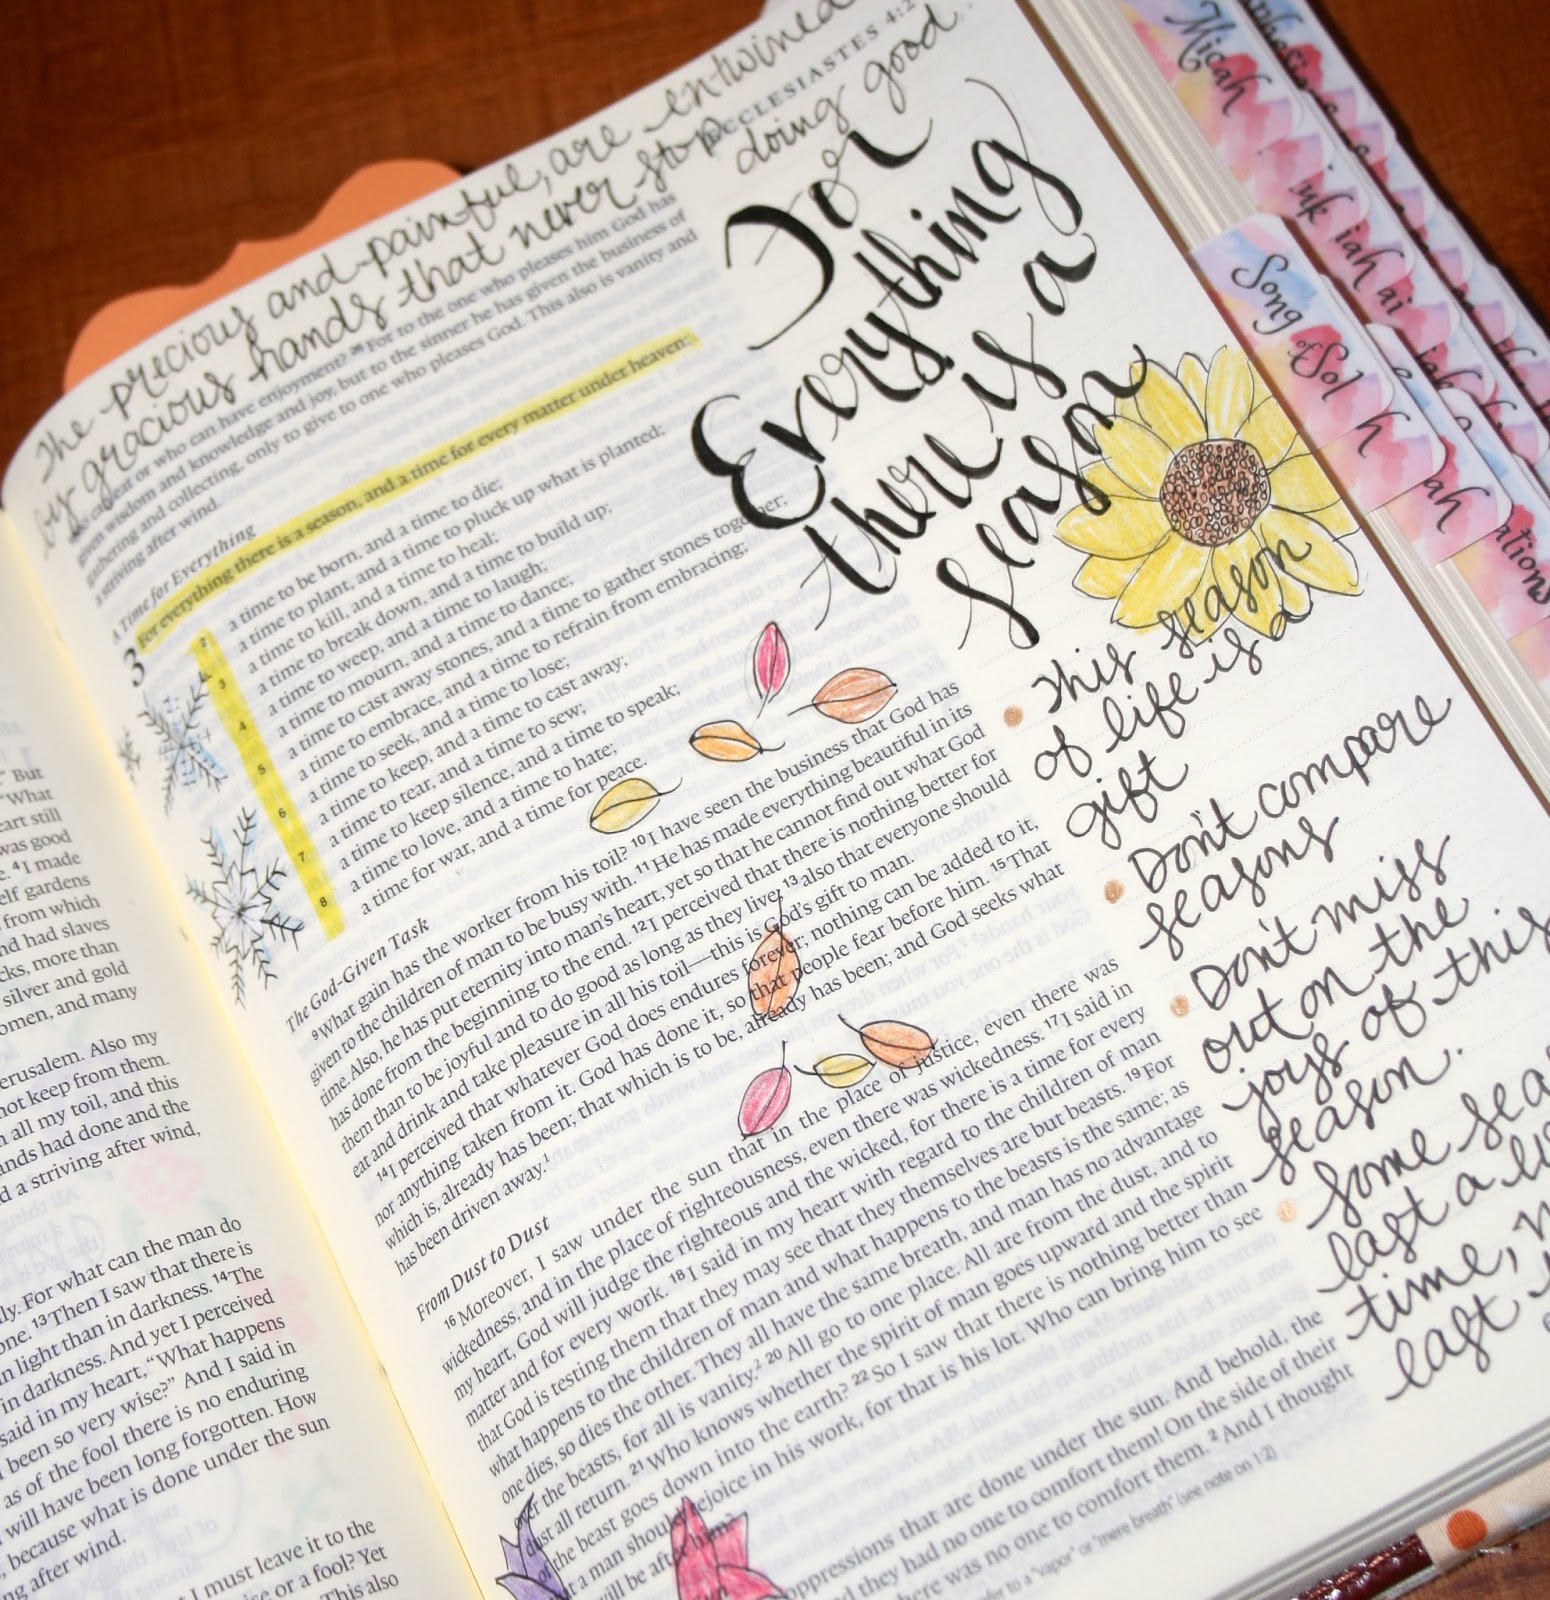 The precious and painful, are entwined
by gracious hands that never stop
doing good.
ECCLESIASTES 4:2
eat or who can have enjoyment? 26 For to the one who pleases him God has
given wisdom and knowledge and joy, but to the sinner he has given the business of
gathering and collecting, only to give to one who pleases God. This also is vanity and
a striving after wind.
A Time for Everything
3 For everything there is a season, and a time for every matter under heaven:
2 a time to be born, and a time to die;
a time to plant, and a time to pluck up what is planted;
3 a time to kill, and a time to heal;
a time to break down, and a time to build up;
4 a time to weep, and a time to laugh;
a time to mourn, and a time to dance;
5 a time to cast away stones, and a time to gather stones together;
a time to embrace, and a time to refrain from embracing;
6 a time to seek, and a time to lose;
a time to keep, and a time to cast away;
7 a time to tear, and a time to sew;
a time to keep silence, and a time to speak;
8 a time to love, and a time to hate;
a time for war, and a time for peace.
The God-Given Task
9 What gain has the worker from his toil? 10 I have seen the business that God has
given to the children of man to be busy with. 11 He has made everything beautiful in its
time. Also, he has put eternity into man's heart, yet so that he cannot find out what God
has done from the beginning to the end. 12 I perceived that there is nothing better for
them than to be joyful and to do good as long as they live; 13 also that everyone should
eat and drink and take pleasure in all his toil—this is God's gift to man.
14 I perceived that whatever God does endures forever; nothing can be added to it,
nor anything taken from it. God has done it, so that people fear before him. 15 That
which is, already has been; that which is to be, already has been; and God seeks what
has been driven away.1
From Dust to Dust
16 Moreover, I saw under the sun that in the place of justice, even there was
wickedness, and in the place of righteousness, even there was wickedness. 17 I said in
my heart, God will judge the righteous and the wicked, for there is a time for every
matter and for every work. 18 I said in my heart with regard to the children of man
that God is testing them that they may see that they themselves are but beasts. 19 For
what happens to the children of man and what happens to the beasts is the same; as
one dies, so dies the other. They all have the same breath, and man has no advantage
over the beasts, for all is vanity.2 20 All go to one place. All are from the dust, and to
dust all return. 21 Who knows whether the spirit of man goes upward and the spirit
of the beast goes down into the earth? 22 So I saw that there is nothing better than
that a man should rejoice in his work, for that is his lot. Who can bring him to see
will be after him?
oppressions that are done under the sun. And behold, the
they had no one to comfort them! On the side of their
there was no one to comfort them. 2 And I thought
refer to a "vapor" or "mere breath" (see note on 1:2)
For
Everything
there is a
season
This season
of life is a
gift
Don't compare
seasons
Don't miss
out on the
joys of this
season.
Some
last a
time,
last
Micah
Song
of Sol
But
"What
heart still
was good
4 I made
gardens
from which
and had slaves
more than
silver and gold
and many
Jerusalem. Also my
not keep from them.
all my toil, and this
hands had done and the
a striving after wind,
For what can the man do
13 Then I saw that there is
light than in darkness. 14 The
in darkness. And yet I perceived
said in my heart, "What happens
been so very wise?" And I said in
as of the fool there is no enduring
will have been long forgotten. How
because what is done under the sun
after wind.
I must leave it to the
or a fool? Yet
This also